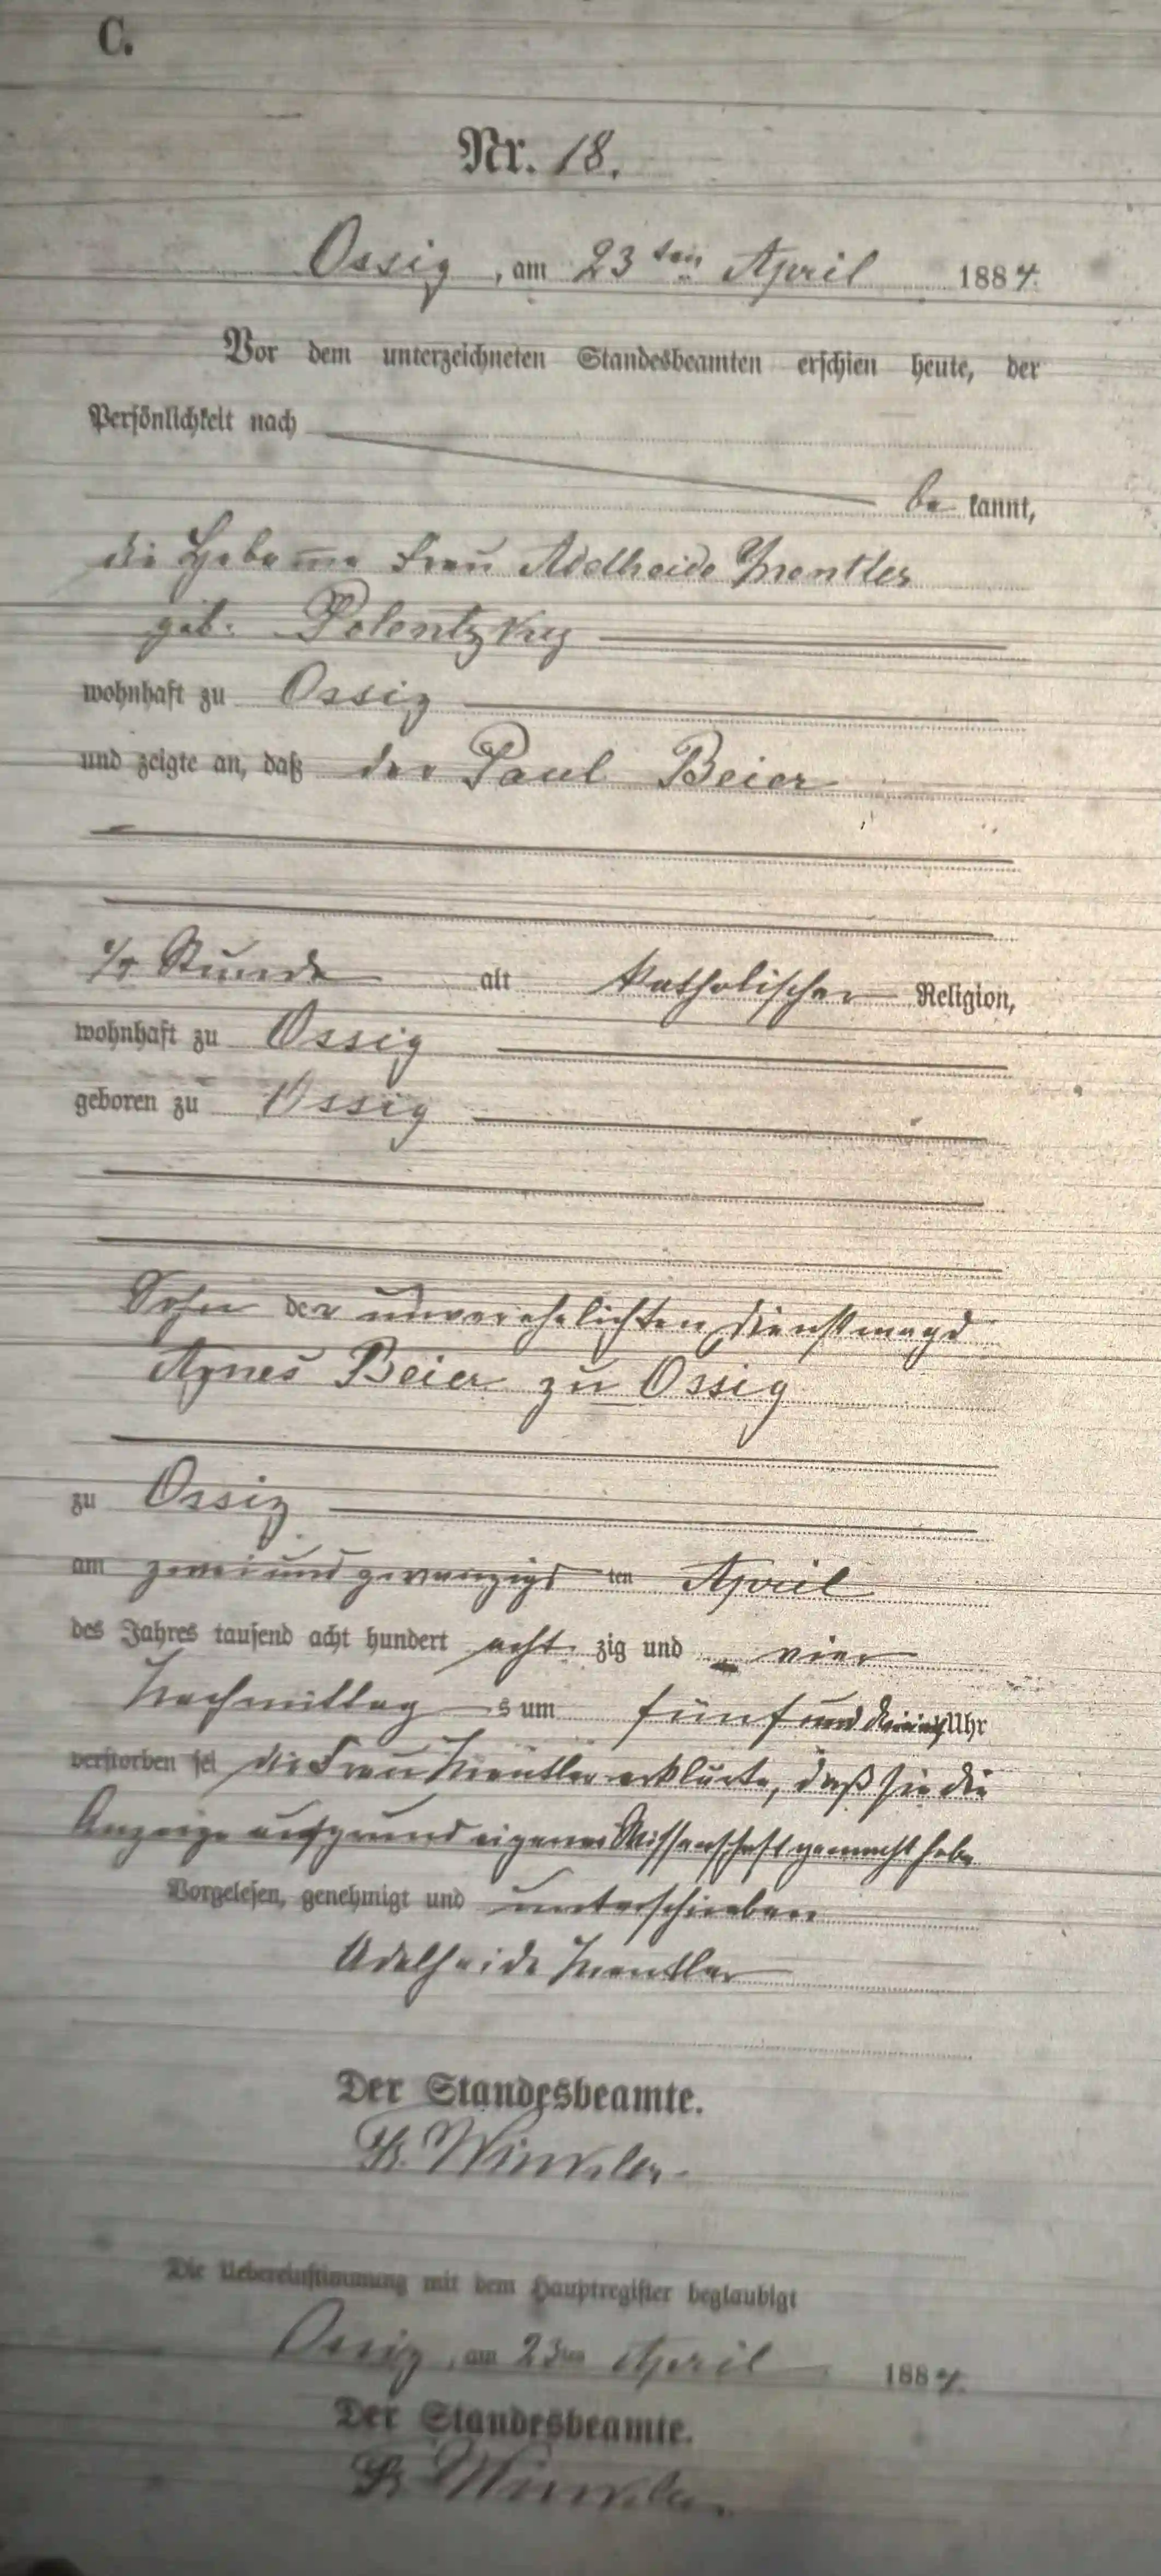 C.
Nr. 18.
Ossig, am 23ten April 1884.
Vor dem unterzeichneten Standesbeamten erschien heute, der
Persönlichkeit nach
be kannt,
die Hebamme Frau Adelheide Mentler
geb. Polentzky
wohnhaft zu Ossig
und zeigte an, daß der Paul Beier
Stunde alt katholischer Religion,
wohnhaft zu Ossig
geboren zu Ossig
Sohn der unverehelichten Dienstmagd
Agnes Beier zu Ossig
zu Ossig
am zwei und zwanzigs ten April
des Jahres tausend acht hundert acht zig und vier
Nachmittag s um fünf und Uhr
verstorben sei die Frau Mentler erklärte, daß sie die
Anzeige aufgrund eigener Wissenschaft gemacht habe
Vorgelesen, genehmigt und unterschrieben
Adelheide Mentler
Der Standesbeamte.
Winkler
Die Uebereinstimmung mit dem Hauptregister beglaubigt
Ossig, am 23ten April 1884.
Der Standesbeamte.
Winkler